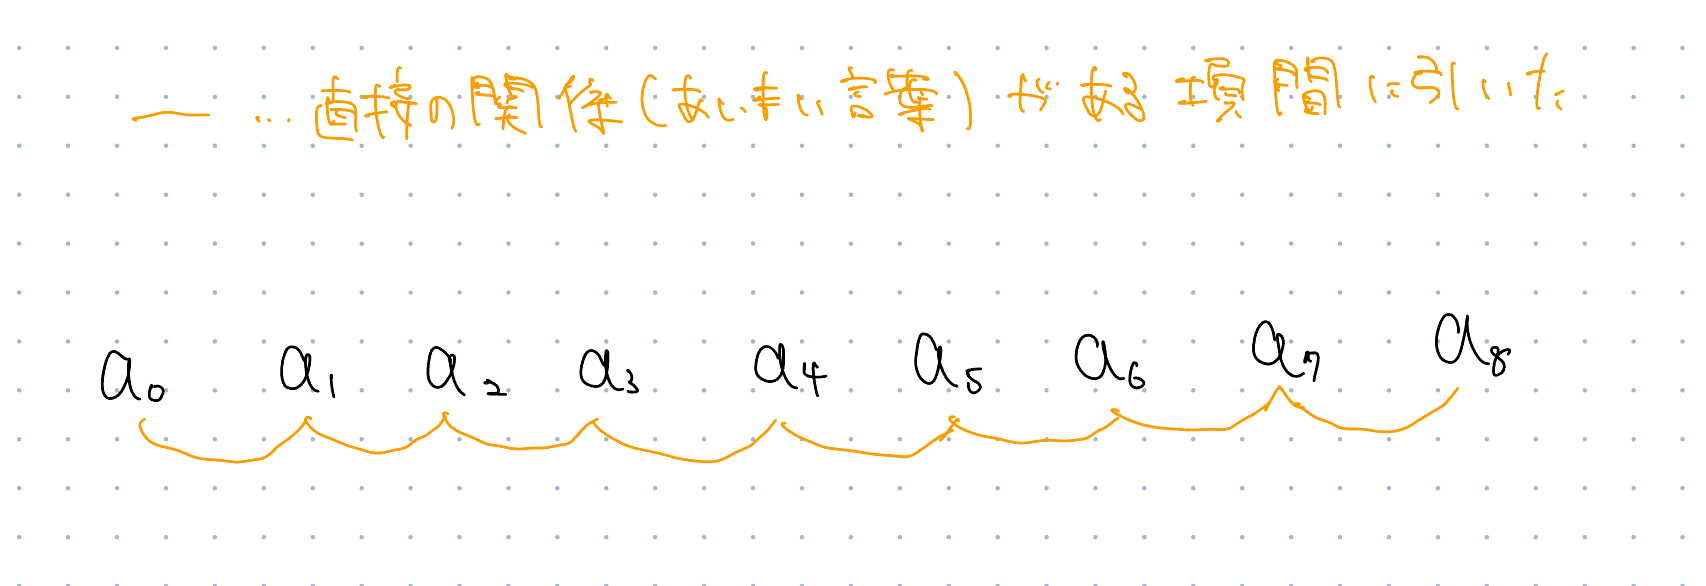 — … 直接の関係(あいまい言葉)がある項間に引いた
a₀ a₁ a₂ a₃ a₄ a₅ a₆ a₇ a₈